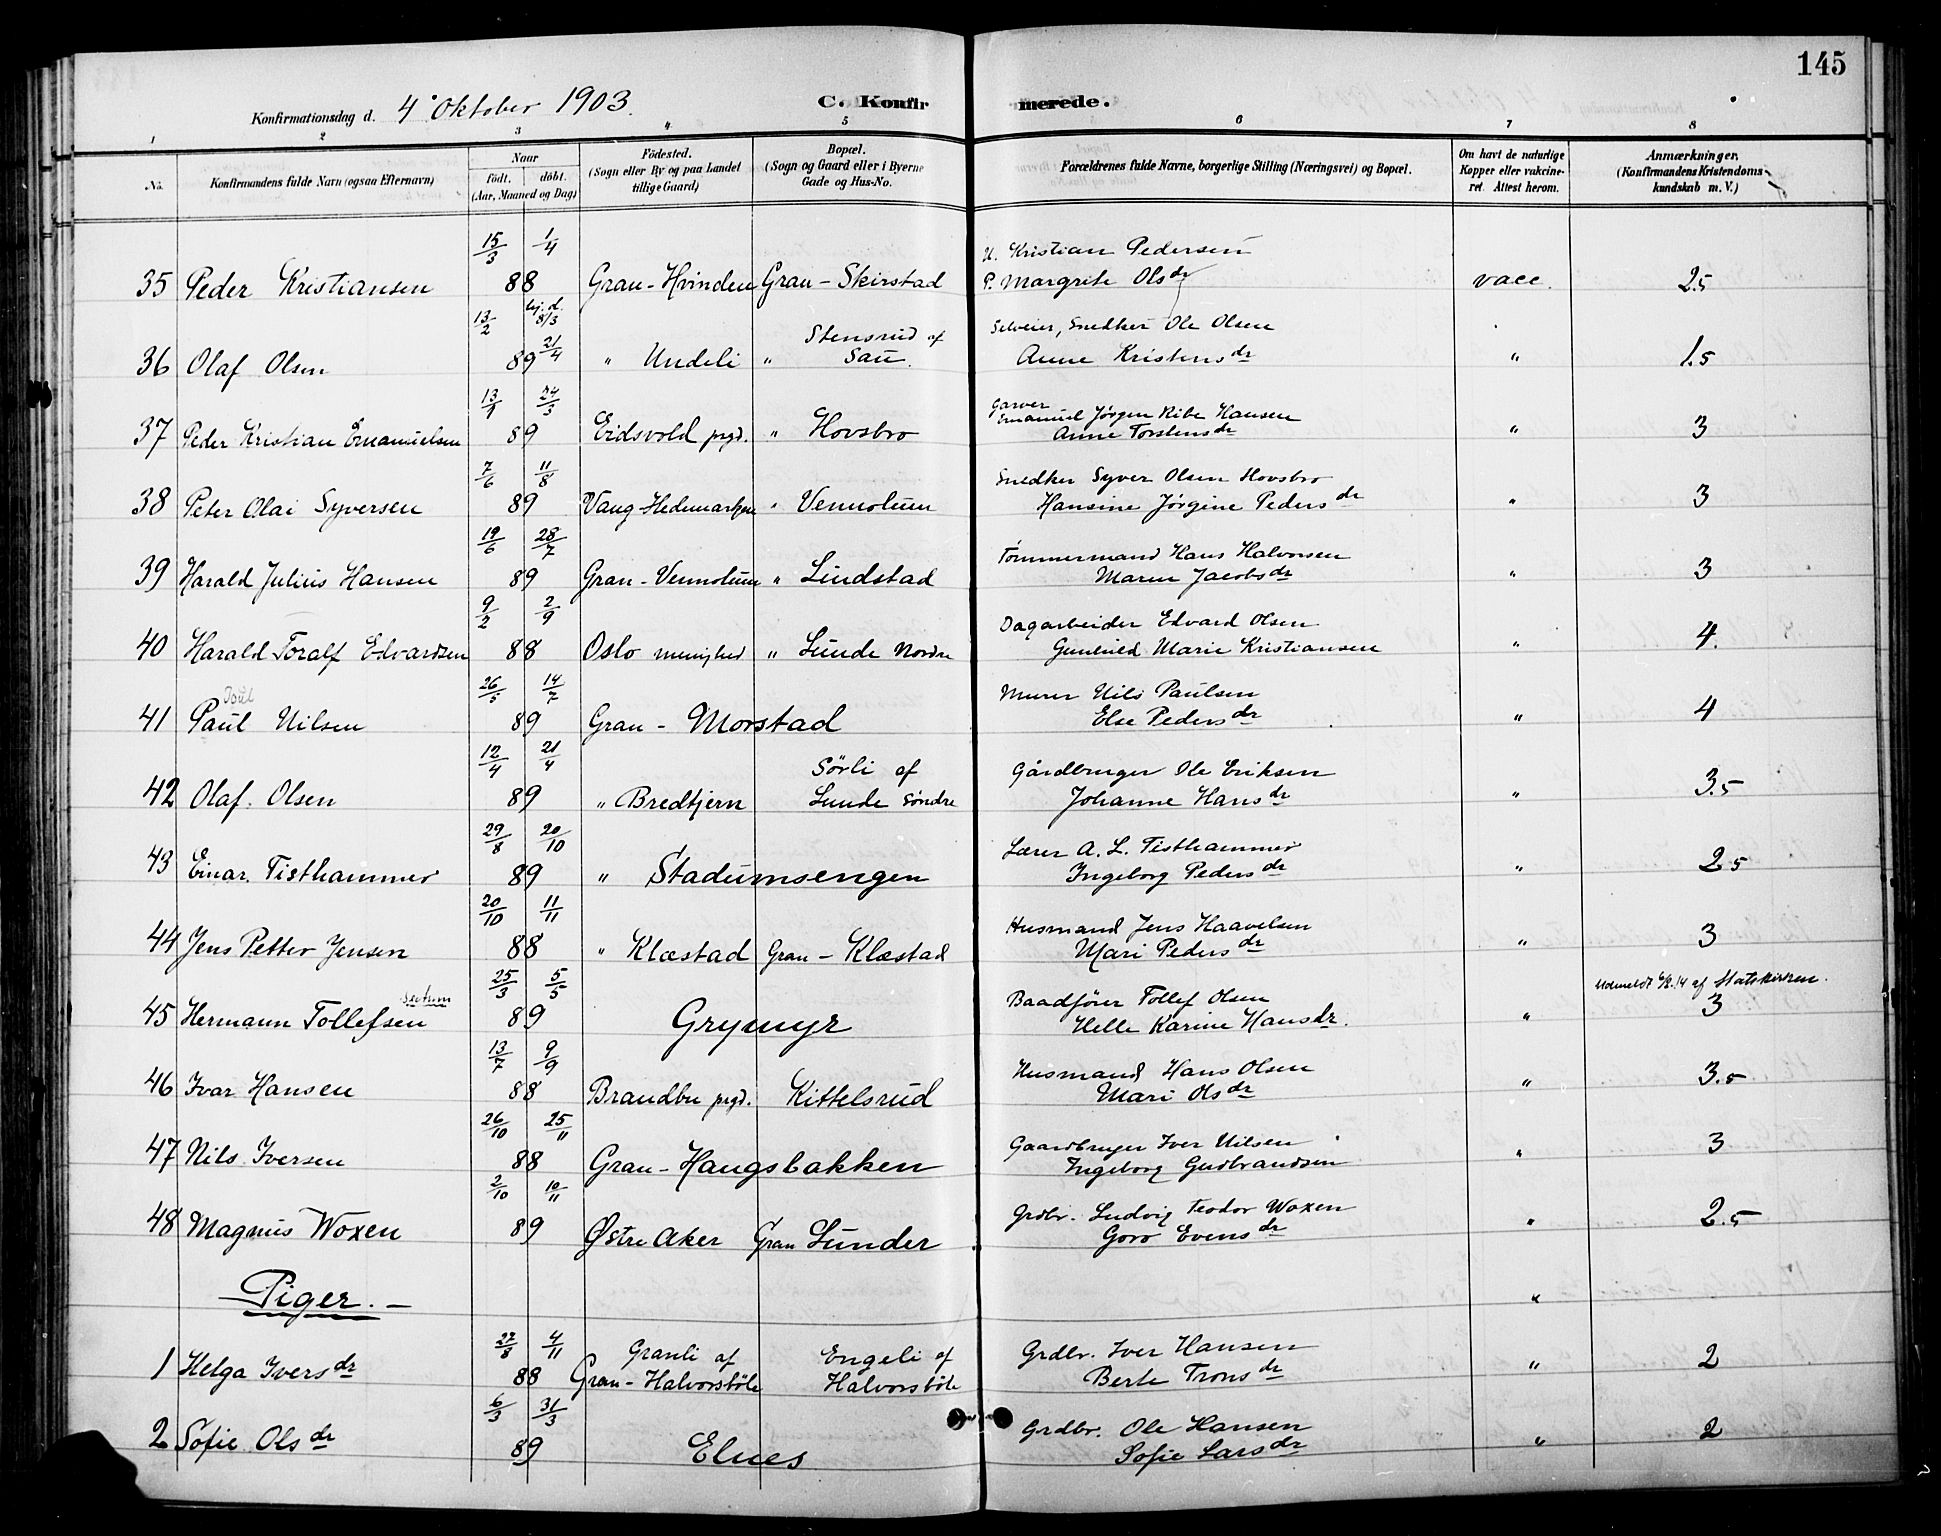 145
Konfirmationsdag d. 4 Oktober 1903.
C. Konfirmerede.
1 2 3 4 5 6 7 8
No. Konfirmandens fulde Navn (ogsaa Efternavn) Naar födt. döbt. (Aar, Maaned og Dag) Födested. (Sogn eller By og paa Landet tillige Gaard) Bopæl. (Sogn og Gaard eller i Byerne Gade og Hus-No. Forældrenes fulde Navne, borgerlige Stilling (Næringsvei) og Bopæl. Om havt de naturlige Kopper eller vakcineret. Attest herom. Anmærkninger. (Konfirmandens Kristendomskundskab m. V.)
15/3 1/4 U. Kristian Pedersen
35 Peder Kristiansen 88 Gran - Hvinden Gran - Skirstad P. Margrete Olsdr vacc. 2.5
13/2 hj. d. 8/3 Stensrud af Selveier, Snedker Ole Olsen
36 Olaf Olsen 89 21/4 " Undeli " Sau. Anne Kristensdr " 1.5
13/1 24/3 Garver Emanuel Jørgen Ribe Hansen
37 Peder Kristian Emanuelsen 89 Eidsvold prgd. " Hovsbro Anne Torstensdr " 3
7/6 11/8 Snedker Syver Olsen Hovsbro
38 Peter Olai Syversen 89 Vang Hedemarken " Vennolum Hansine Jørgine Pedersdr " 3
19/6 28/7 Tømmermand Hans Halvorsen
39 Harald Julius Hansen 89 Gran - Vennolum " Lindstad Maren Jacobsdr " 3
9/2 2/9 Dagarbeider Edvard Olsen
40 Harald Toralf Edvardsen 88 Oslo menighed " Lunde Nordre Gunhild Marie Kristiansen " 4.
26/5 14/7 Murer Nils Paulsen
41 Paul Nilsen 89 Gran - Morstad Else Pedersdr " 4
12/4 21/4 Sørli af Gårdbruger Ole Eriksen
42 Olaf. Olsen 89 " Bredtjern Lunde søndre Johanne Hansdr " 3.5
29/8 20/10 Lærer A. L. Tisthammer
43 Einar. Tisthammer 89 " Stadumsengen Ingeborg Pedersdr " 2.5
20/10 11/11 Husmand Jens Haavelsen
44 Jens Petter Jensen 88 " Klæstad Gran - Klæstad Mari Pedersdr " 3
25/3 5/5 Baadfører Tollef Olsen Udmeldt af Statskirken.
45 Hermann Tollefsen 89 Grymyr Helle Karine Hansdr. " 3
13/7 9/9 Husmand Hans Olsen
46 Ivar Hansen 88 Brandbu prgd. Kittelsrud Mari Olsdr " 3.5
26/10 25/11 Gaardbruger Iver Nilsen
47 Nils Iversen 88 Gran - Haugsbakken Ingeborg Gudbrandsen " 3
2/10 10/11 Grdbr. Ludvig Teodor Woxen
48 Magnus Woxen 89 Østre Aker Gran Lunder Goro Evensdr " 2.5
Piger. - "
27/8 4/11 Granli af Engeli af Grdbr. Iver Hansen
1 Helga Iversdr 88 Gran - Halvorsbøle Halvorsbøle Berte Tronsdr " 2
6/3 31/3 Grdbr. Ole Hansen
2 Sofie Olsdr 89 Elnes Sofie Larsdr " 2